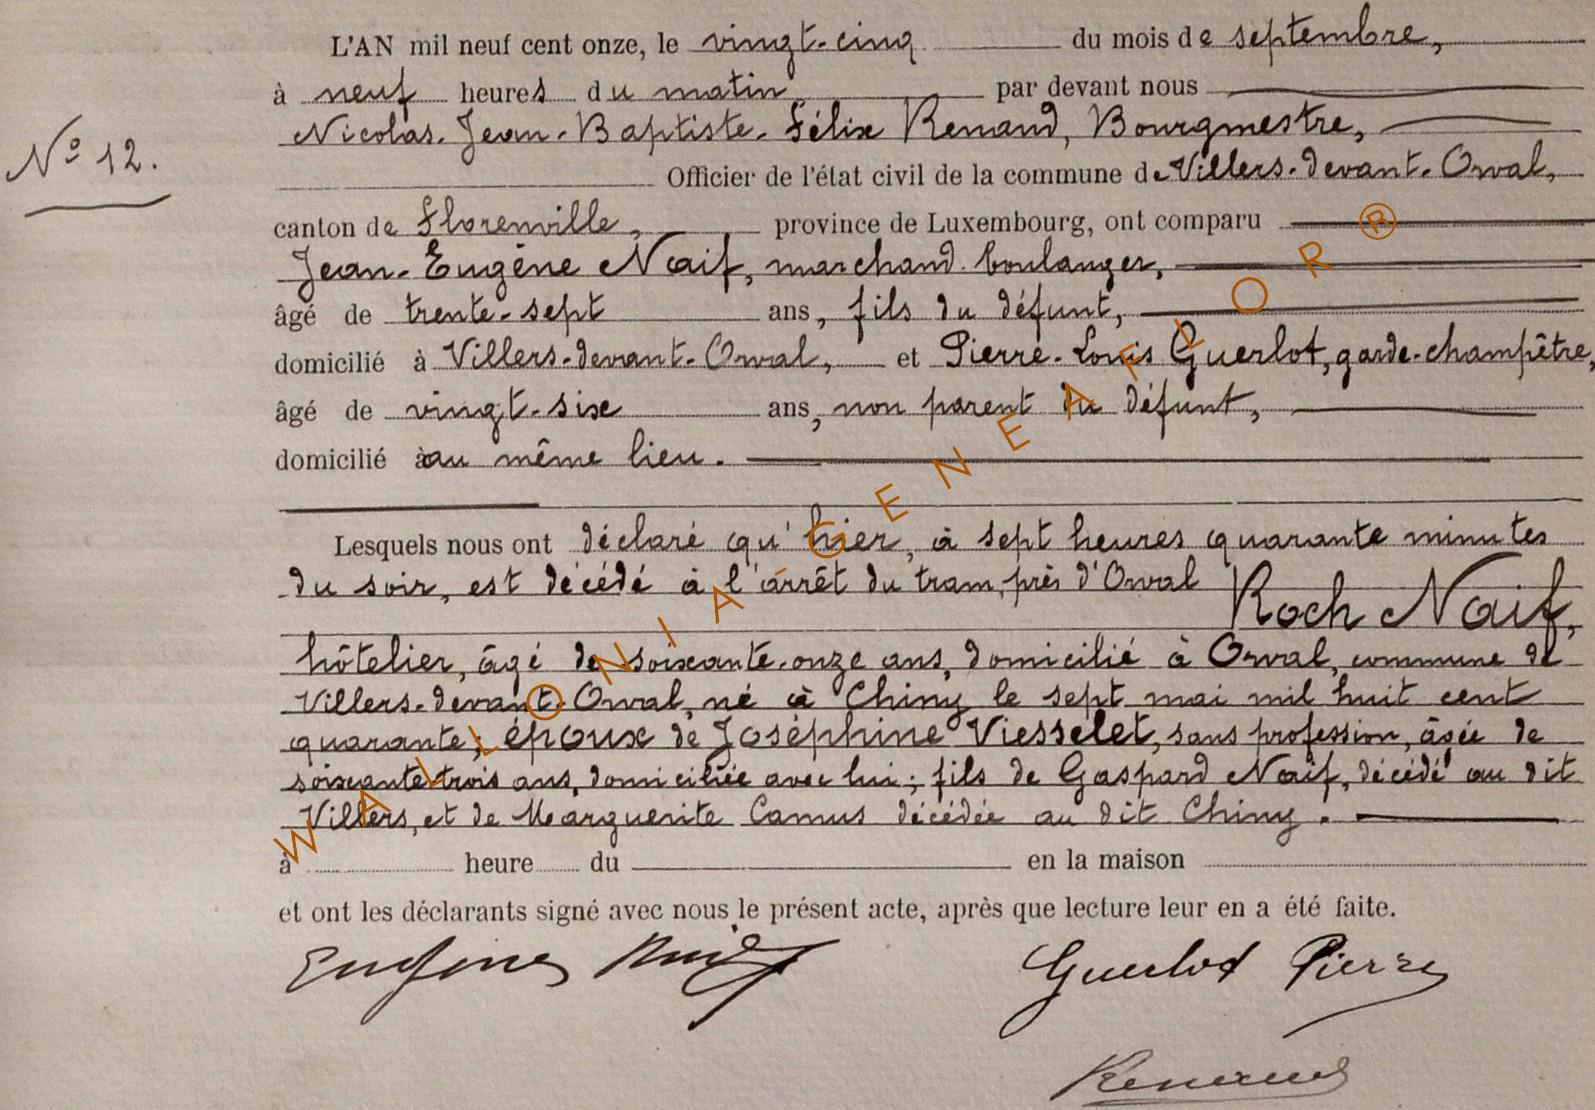 L'AN mil neuf cent onze, le vingt-cinq du mois de septembre,
à neuf heures du matin par devant nous
Nicolas-Jean-Baptiste-Félix Renaud, Bourgmestre,
N° 12.
Officier de l'état civil de la commune de Villers-devant-Orval,
canton de Florenville, province de Luxembourg, ont comparu
Jean-Eugène Naif, marchand-boulanger,
âgé de trente-sept ans, fils du défunt,
domicilié à Villers-devant-Orval, et Pierre-Louis Guerlot, garde-champêtre,
âgé de vingt-six ans, non parent du défunt,
domicilié à au même lieu.
Lesquels nous ont déclaré qu'hier, à sept heures quarante minutes
du soir, est décédé à l'arrêt du tram, près d'Orval Roch Naif,
hôtelier, âgé de soixante-onze ans, domicilié à Orval, commune de
Villers-devant-Orval, né à Chiny le sept mai mil huit cent
quarante; époux de Joséphine Viesselet, sans profession, âgée de
soixante-trois ans, domiciliée avec lui; fils de Gaspard Naif, décédé au dit
Villers, et de Marguerite Camus décédée au dit Chiny.
à heure du en la maison
et ont les déclarants signé avec nous le présent acte, après que lecture leur en a été faite.
Eugène Naif Guerlot Pierre
Renaud
WALLONIA-GENEAFLOR®